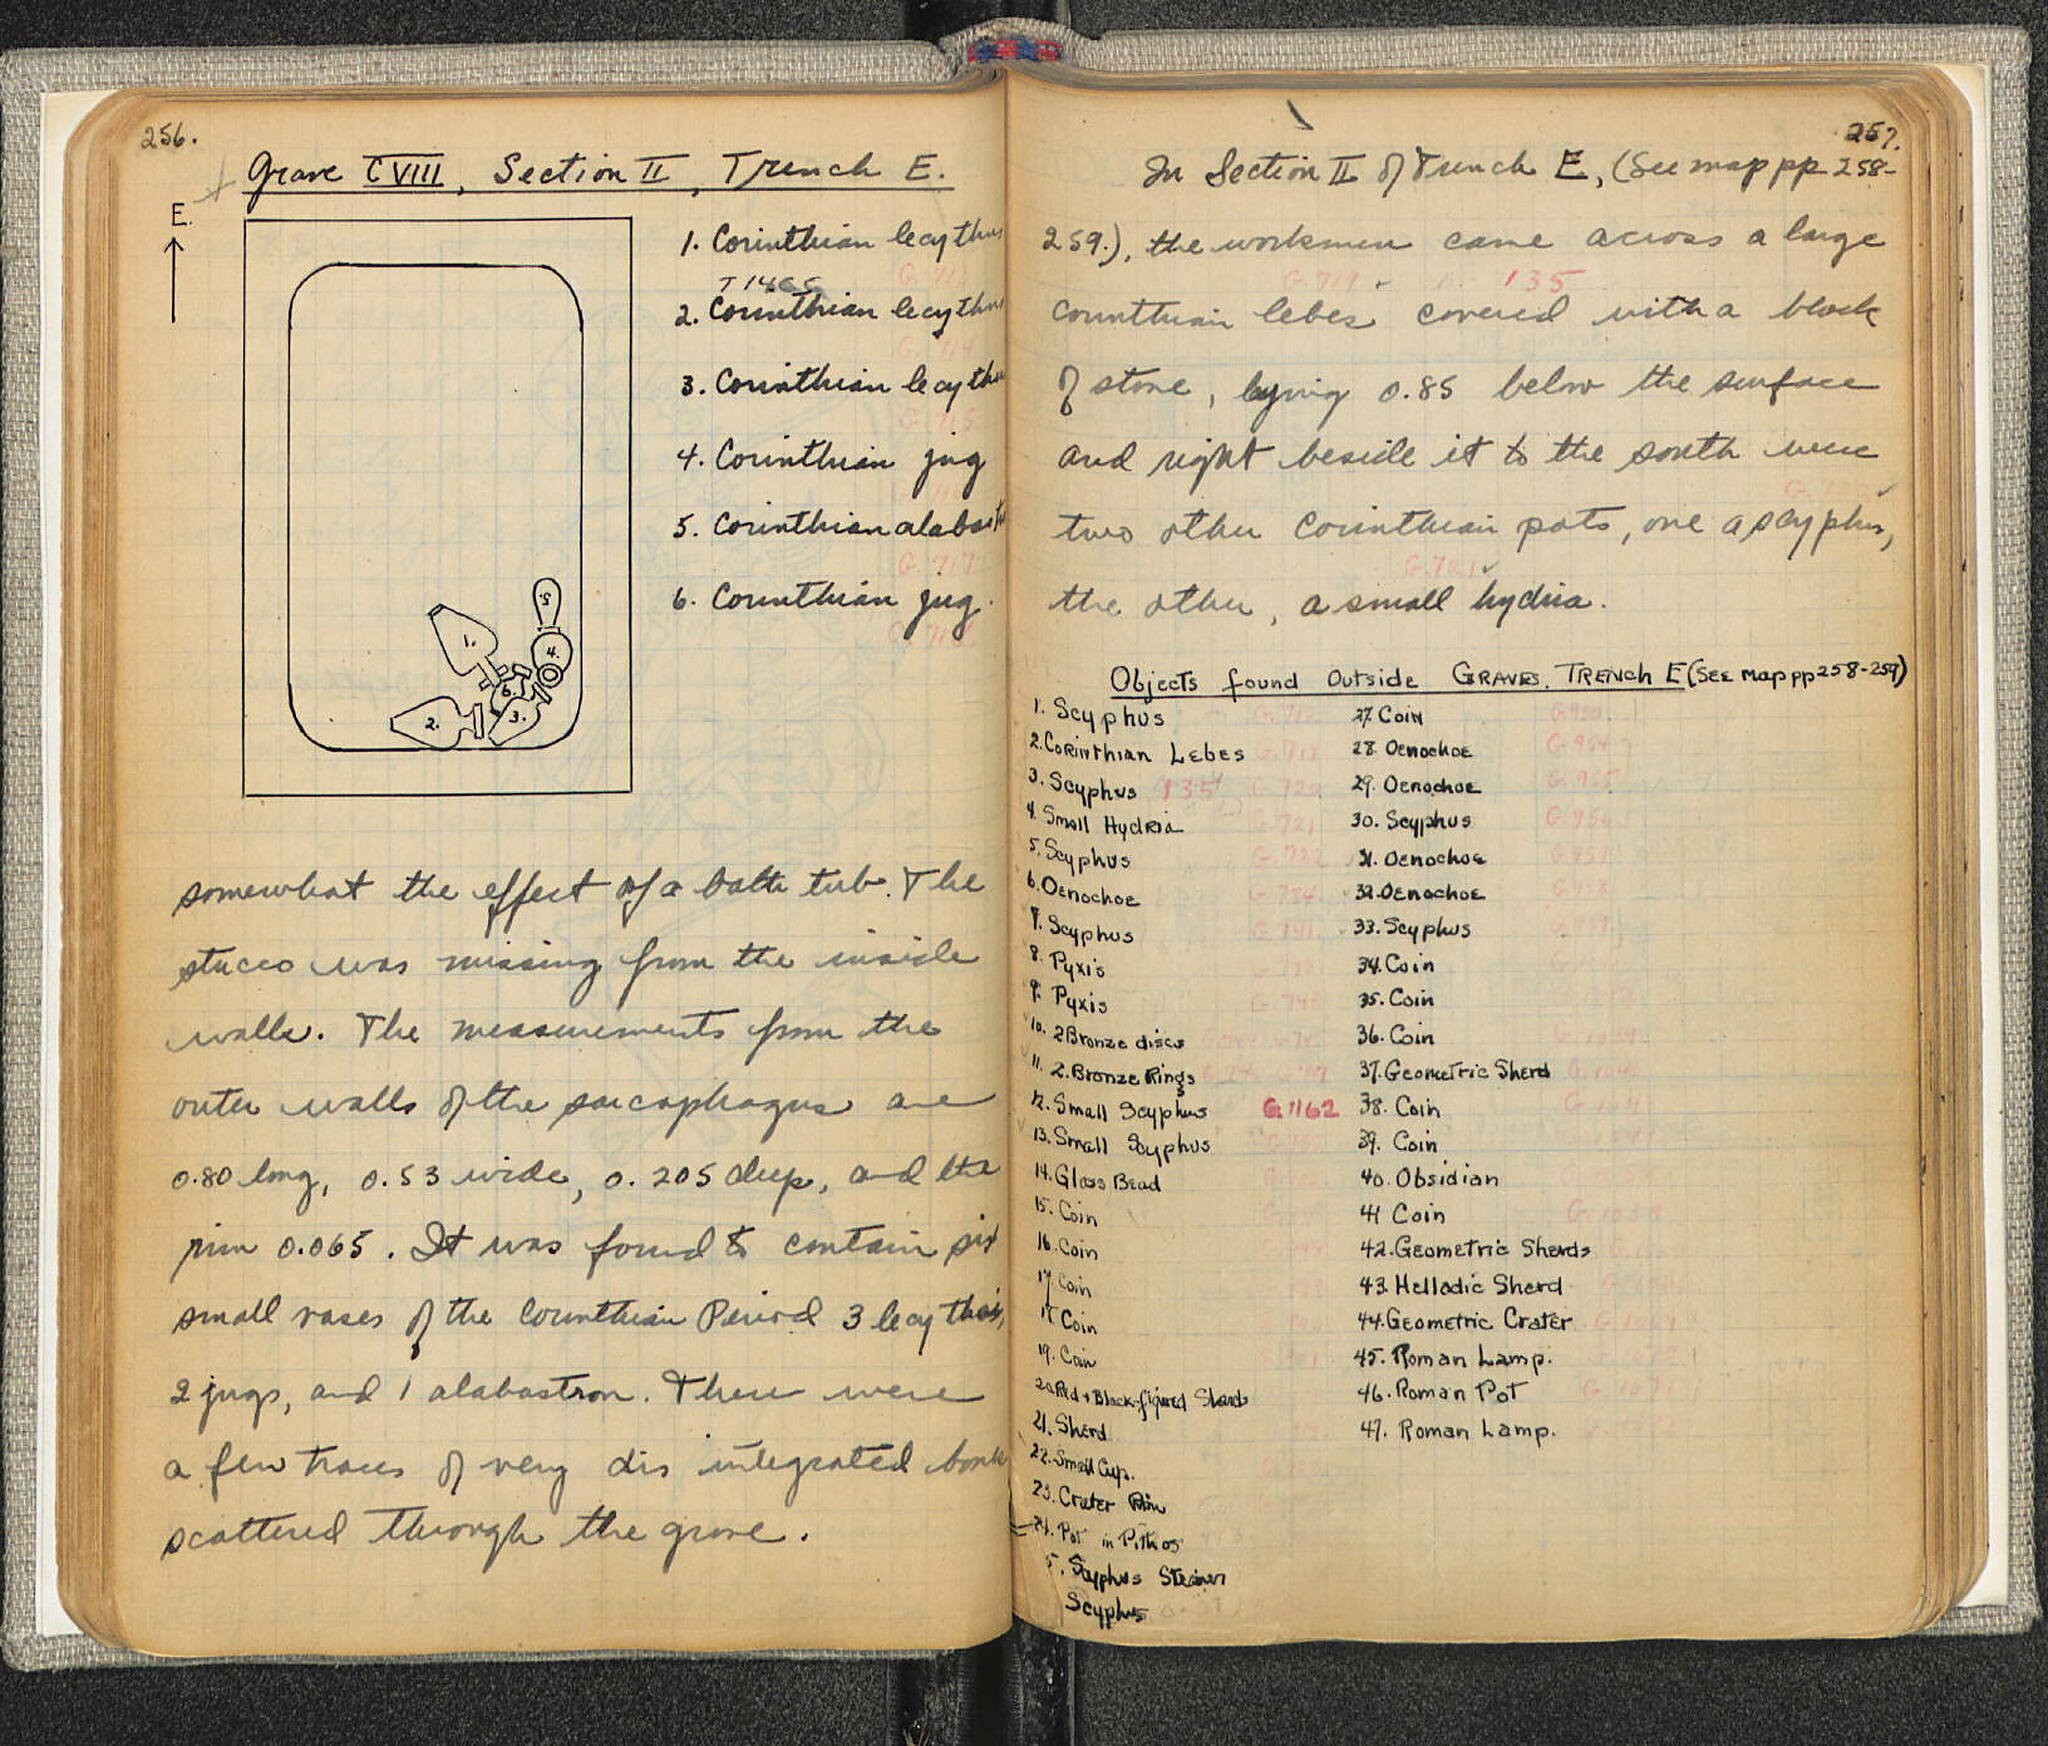 256.
Grave CVIII, Section II, Trench E.
E.
1. Corinthian lecythus
T 1466
2. Corinthian lecythus
3. Corinthian lecythus
4. Corinthian jug
5. Corinthian alabast
G.717
6. Corinthian jug.
5.
1.
4.
6.
2.
3.
somewhat the effect of a bath tub. The
stucco was missing from the inside
walls. The measurements from the
outer walls of the sarcophagus are
0.80 long, 0.53 wide, 0.205 deep, and the
rim 0.065. It was found to contain six
small vases of the Corinthian Period 3 lecythoi,
2 jugs, and 1 alabastron. There were
a few traces of very disintegrated bones
scattered through the grave.
257.
In Section II of Trench E, (See map pp 258-
259.), the workmen came across a large
G.719 135
Corinthian lebes covered with a block
of stone, lying 0.85 below the surface
and right beside it to the south were
two other Corinthian pots, one a scyphus,
G.721
the other, a small hydria.
Objects found outside GRAVES. TRENCH E (SEE map pp 258-259)
1. Scyphus
2. Corinthian Lebes
3. Scyphus 135 G.720
4. Small Hydria G.721
5. Scyphus
6. Oenochoe G.784
7. Scyphus
8. Pyxis
9. Pyxis
10. 2 Bronze discs
11. 2. Bronze Rings
12. Small Scyphus G.1162
13. Small Scyphus
14. Glass Bead
15. Coin
16. Coin
17. Coin
18 Coin
19. Coin
20. Red + Black-figured Sherds
21. Sherd
22. Small Cup.
23. Crater Rim
24. Pot in Pithos
5. Scyphus Strainer
Scyphus
27. Coin
28. Oenochoe G.954
29. Oenochoe G.955
30. Scyphus G.956
31. Oenochoe G.957
32. Oenochoe G.958
33. Scyphus G.959
34. Coin
35. Coin
36. Coin
37. Geometric Sherd
38. Coin
39. Coin
40. Obsidian
41 Coin
42. Geometric Sherds
43. Helladic Sherd
44. Geometric Crater
45. Roman Lamp.
46. Roman Pot
47. Roman Lamp.